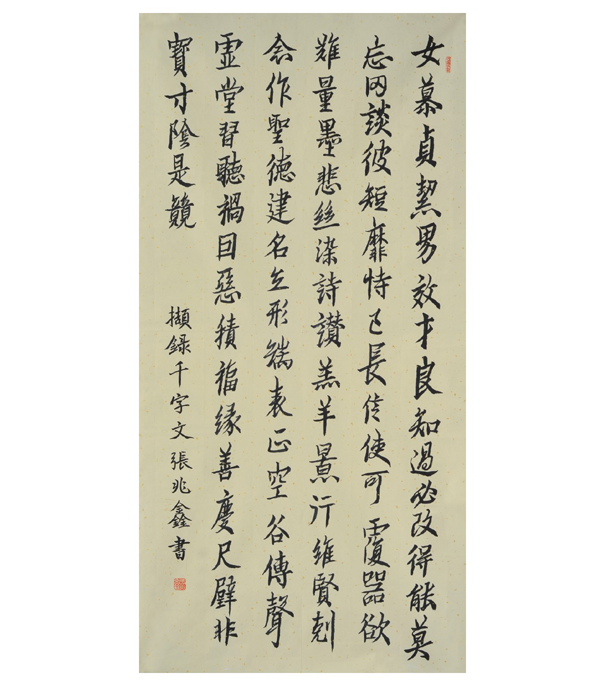 女慕貞絜男效才良知過必改得能莫
忘罔談彼短靡恃己長信使可覆器欲
難量墨悲絲染詩讚羔羊景行維賢剋
念作聖德建名立形端表正空谷傳聲
虛堂習聽禍因惡積福緣善慶尺璧非
寶寸陰是競
擷録千字文張兆鑫書